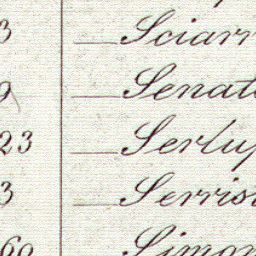 3 — Sciarr
9 — Senato
23 — Serlup
3 — Serris
60 — Simon